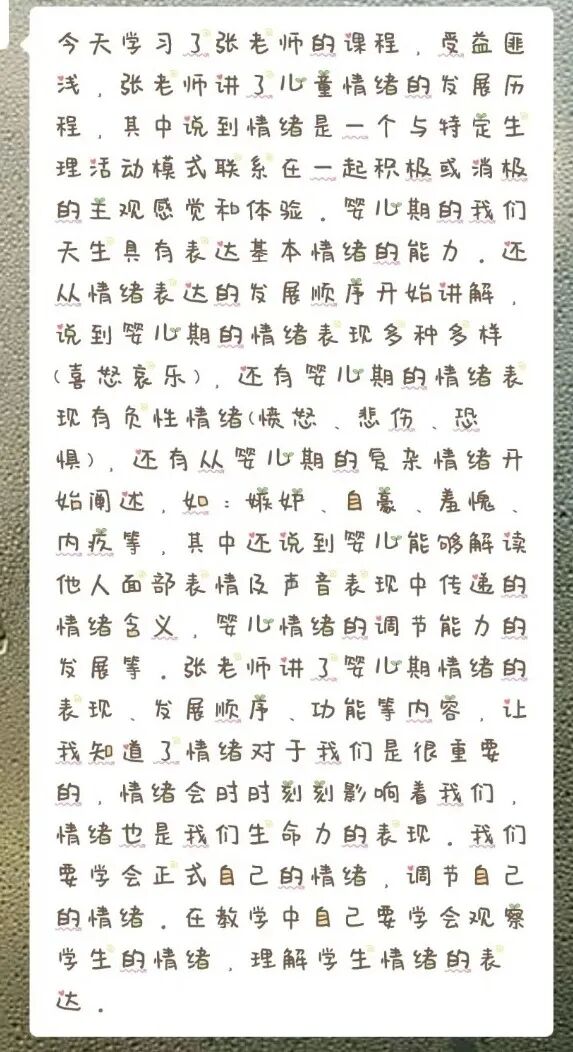 今天学习了张老师的课程，受益匪
浅，张老师讲了儿童情绪的发展历
程，其中说到情绪是一个与特定生
理活动模式联系在一起积极或消极
的主观感觉和体验。婴儿期的我们
天生具有表达基本情绪的能力。还
从情绪表达的发展顺序开始讲解，
说到婴儿期的情绪表现多种多样
(喜怒哀乐)，还有婴儿期的情绪表
现有负性情绪(愤怒、悲伤、恐
惧)，还有从婴儿期的复杂情绪开
始阐述，如：嫉妒、自豪、羞愧、
内疚等，其中还说到婴儿能够解读
他人面部表情及声音表现中传递的
情绪含义，婴儿情绪的调节能力的
发展等。张老师讲了婴儿期情绪的
表现、发展顺序、功能等内容，让
我知道了情绪对于我们是很重要
的，情绪会时时刻刻影响着我们，
情绪也是我们生命力的表现。我们
要学会正式自己的情绪，调节自己
的情绪。在教学中自己要学会观察
学生的情绪，理解学生情绪的表
达。